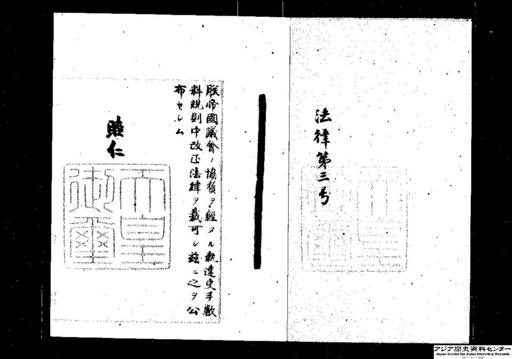 法律第三号
朕帝國議會ノ協賛ヲ經タル執達吏手數
料規則中改正法律ヲ裁可シ茲ニ之ヲ公
布セシム
睦仁
天皇
御璽
アジア歴史資料センター
Japan Center for Asian Historical Records